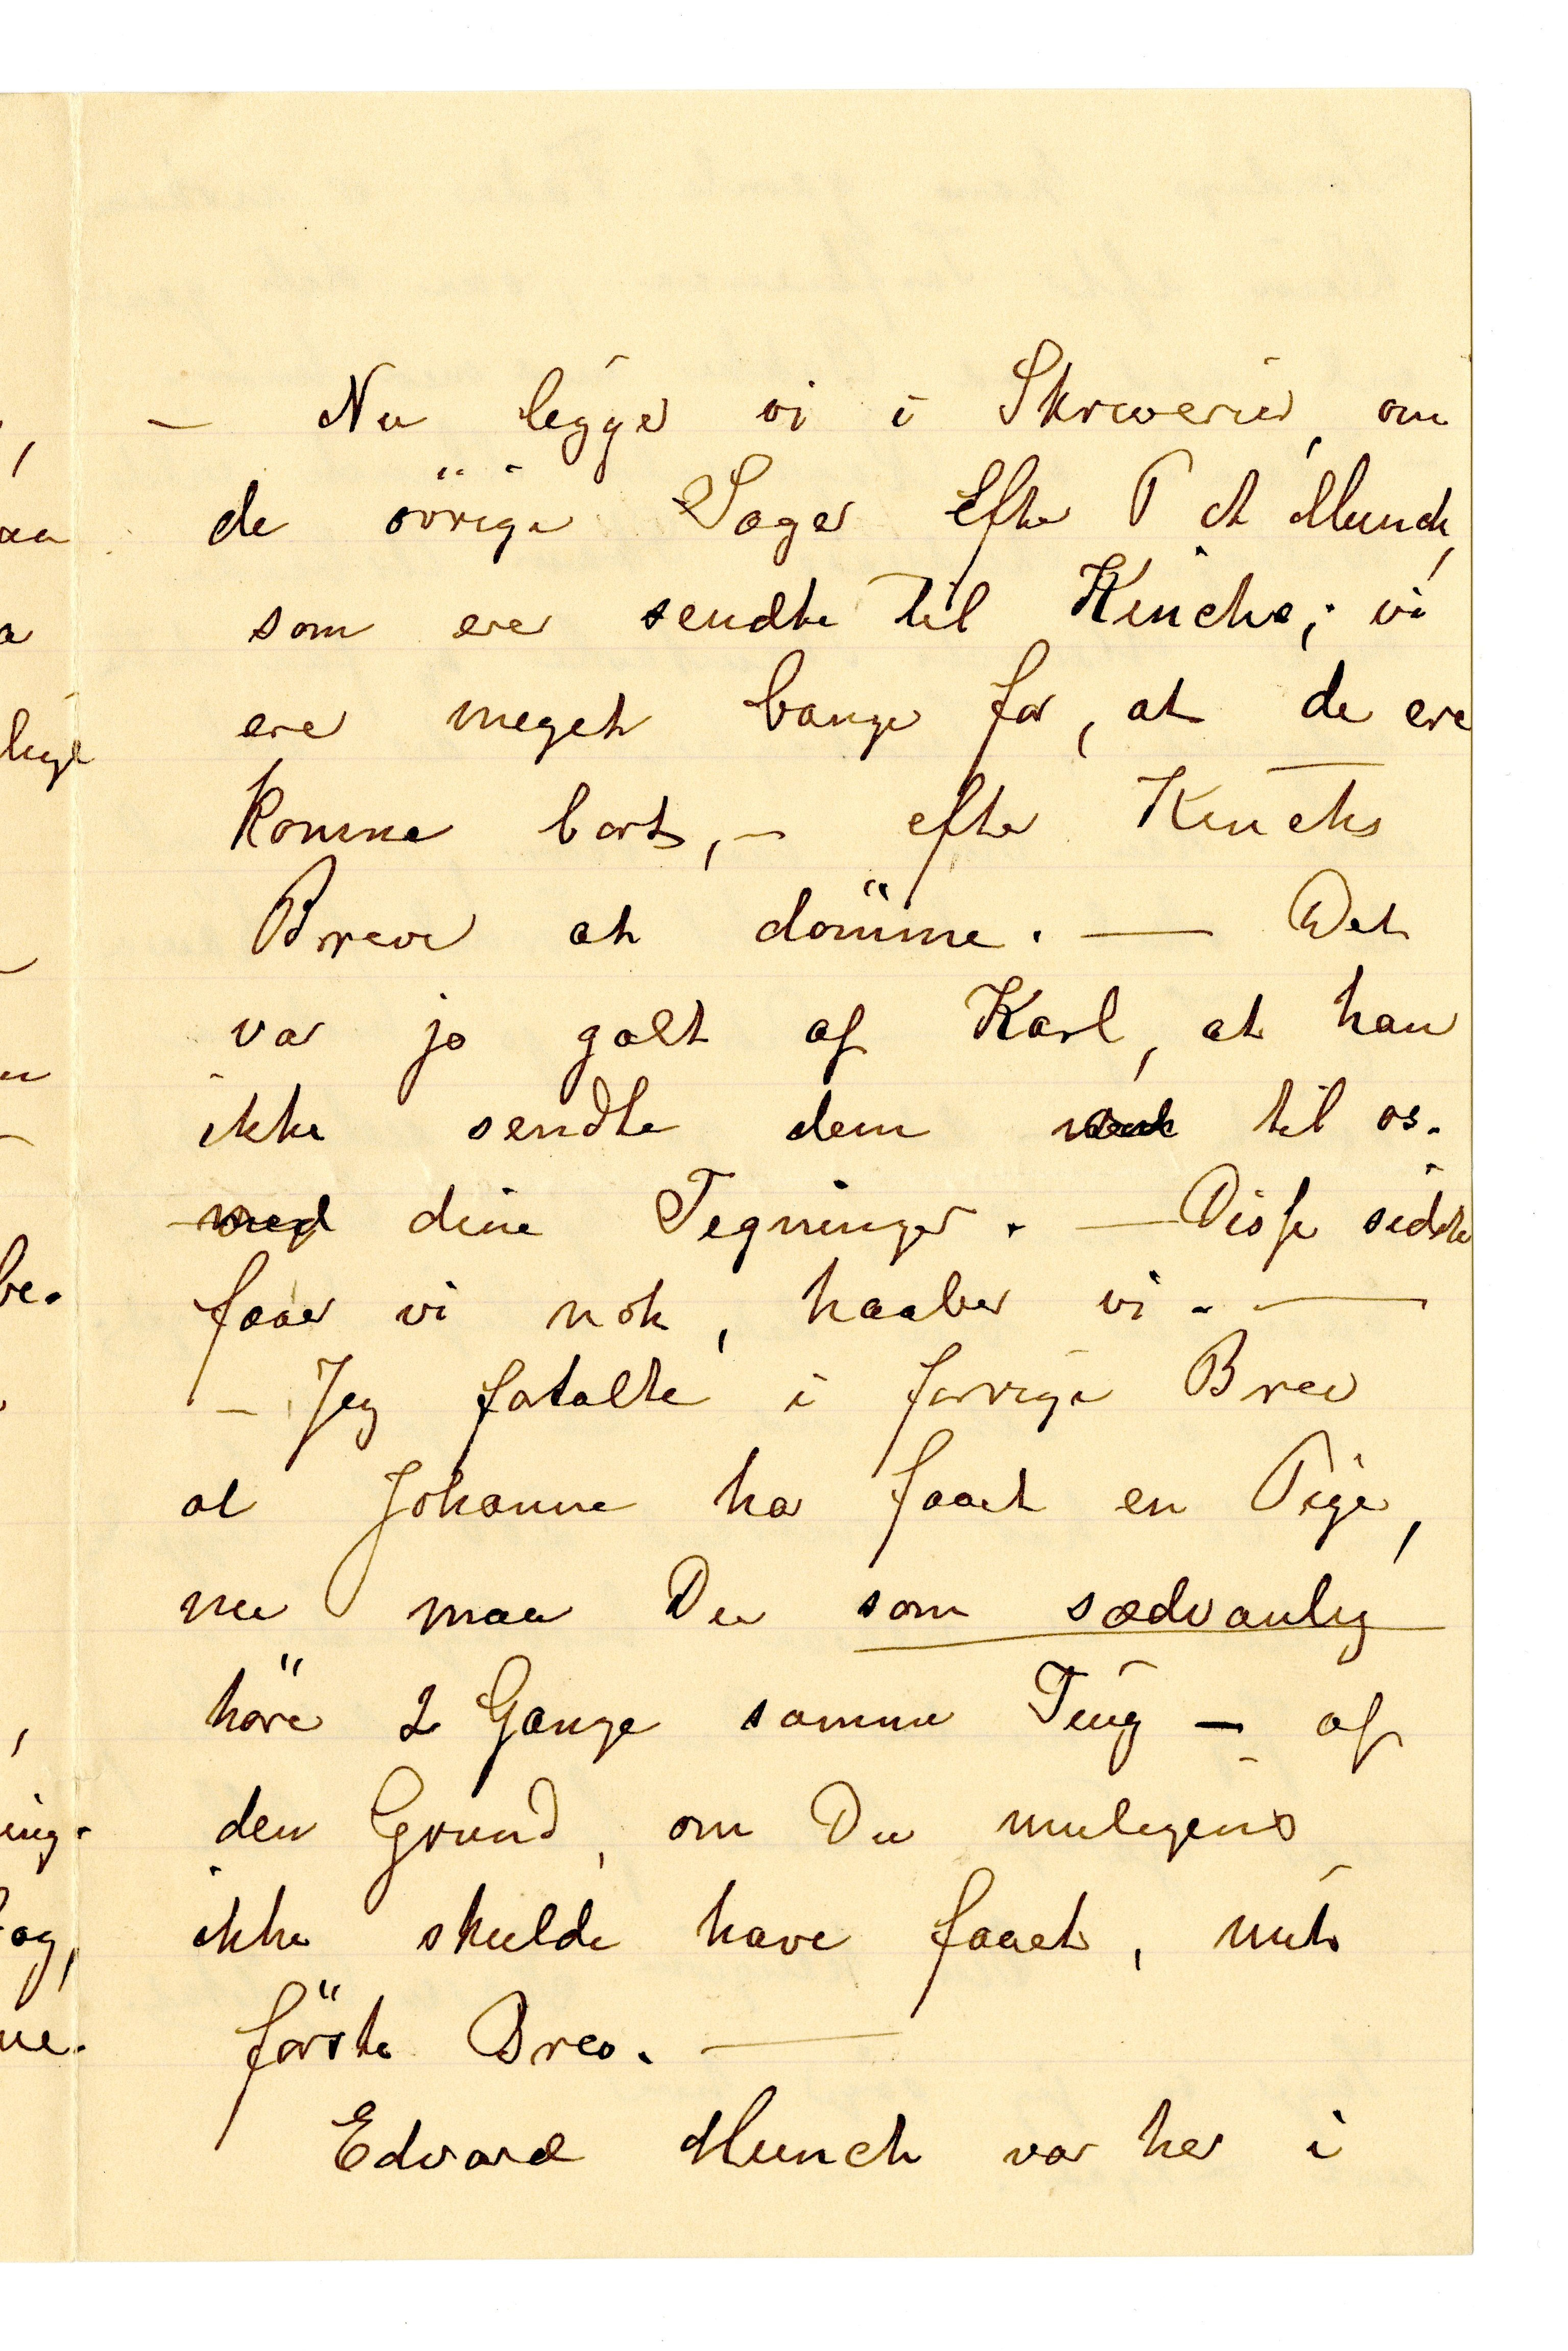 — Nu ligger vi i Skriverier, om
de övrige Sager Efter P A Munch,
som ere sendte til Kinche; vi
ere meget bange for, at de ere
komne bort, – efter Kinchs
Breve at dömme. — Det
var jo galt af Karl, at han
ikke sendte dem til os.
med dine Tegninger. — Disse sidste
faaer vi nok, haaber vi. —
– Jeg fortalte i forrige Brev
at Johanne har faaet en Pige,
nu maa Du som sædvanlig
höre 2 Gange samme Ting – af
den Grund, om Du muligens
ikke skulde have faaet, mit
förste Brev. —
Edvard Munch var her i